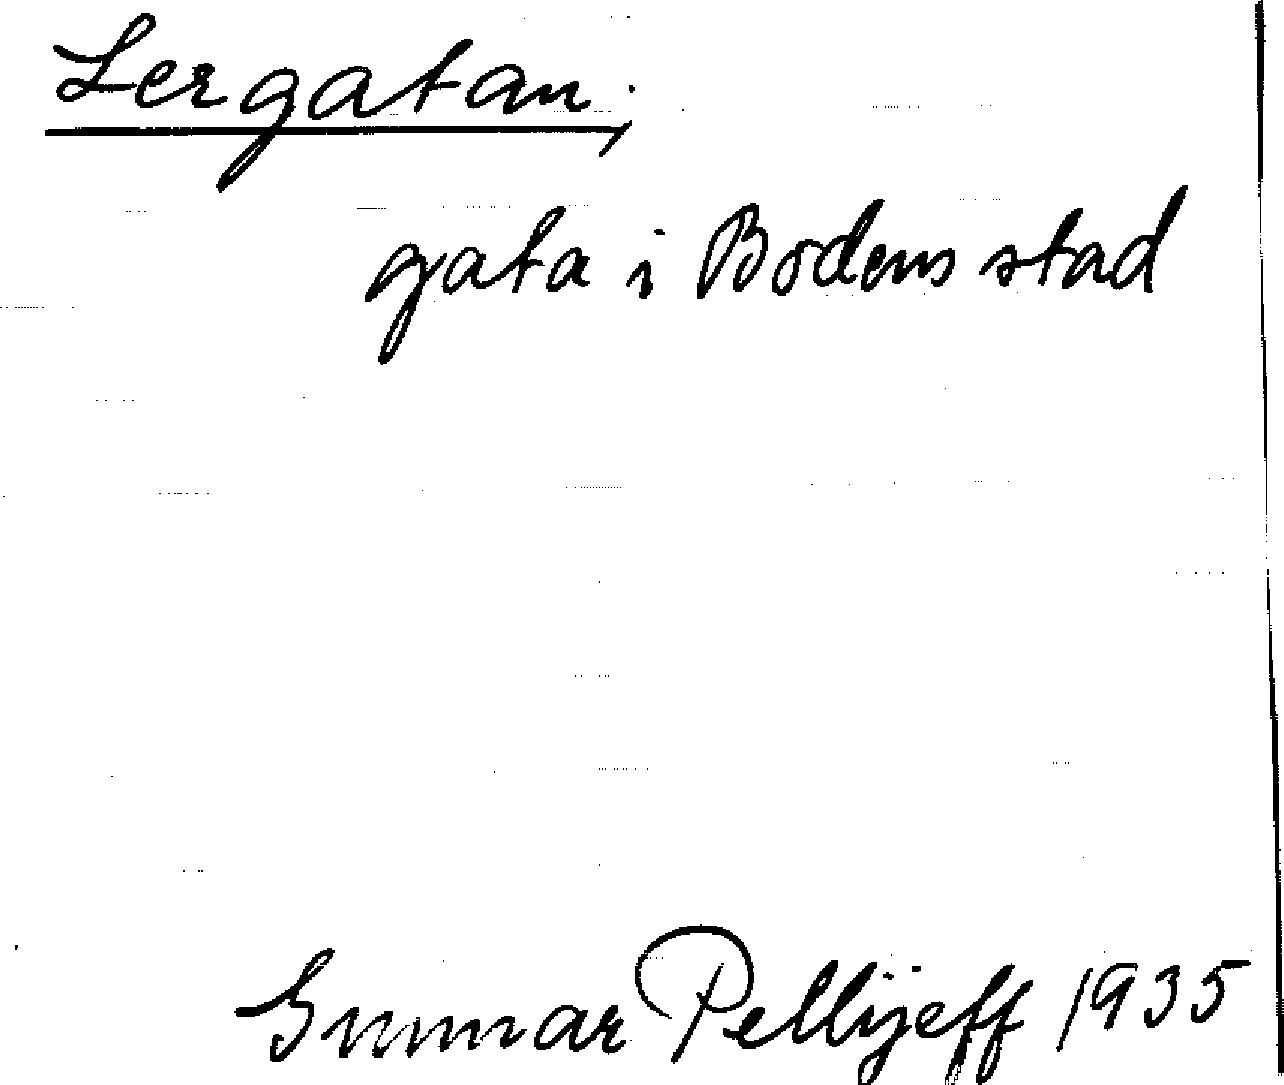 Lergatan,
gata i Bodens stad
Gunnar Pellijeff 1935